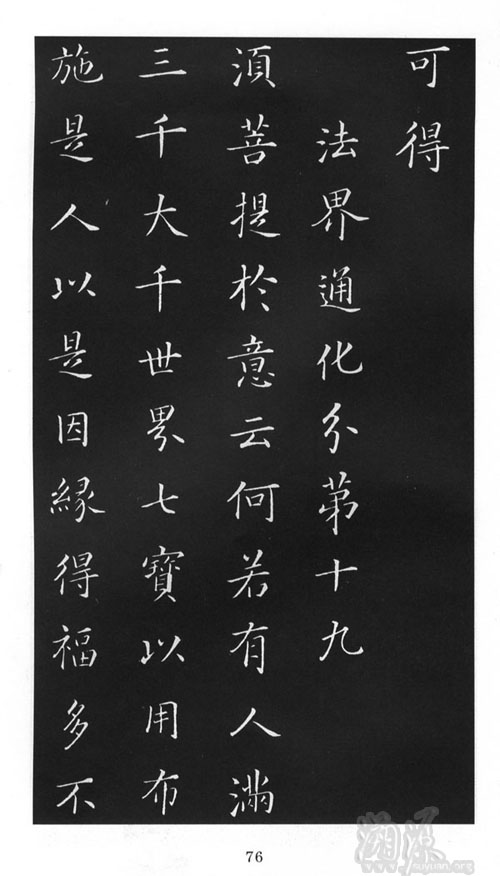 可得
法界通化分第十九
須菩提於意云何若有人滿
三千大千世界七寶以用布
施是人以是因緣得福多不
76
溯源
www.suyuan.org